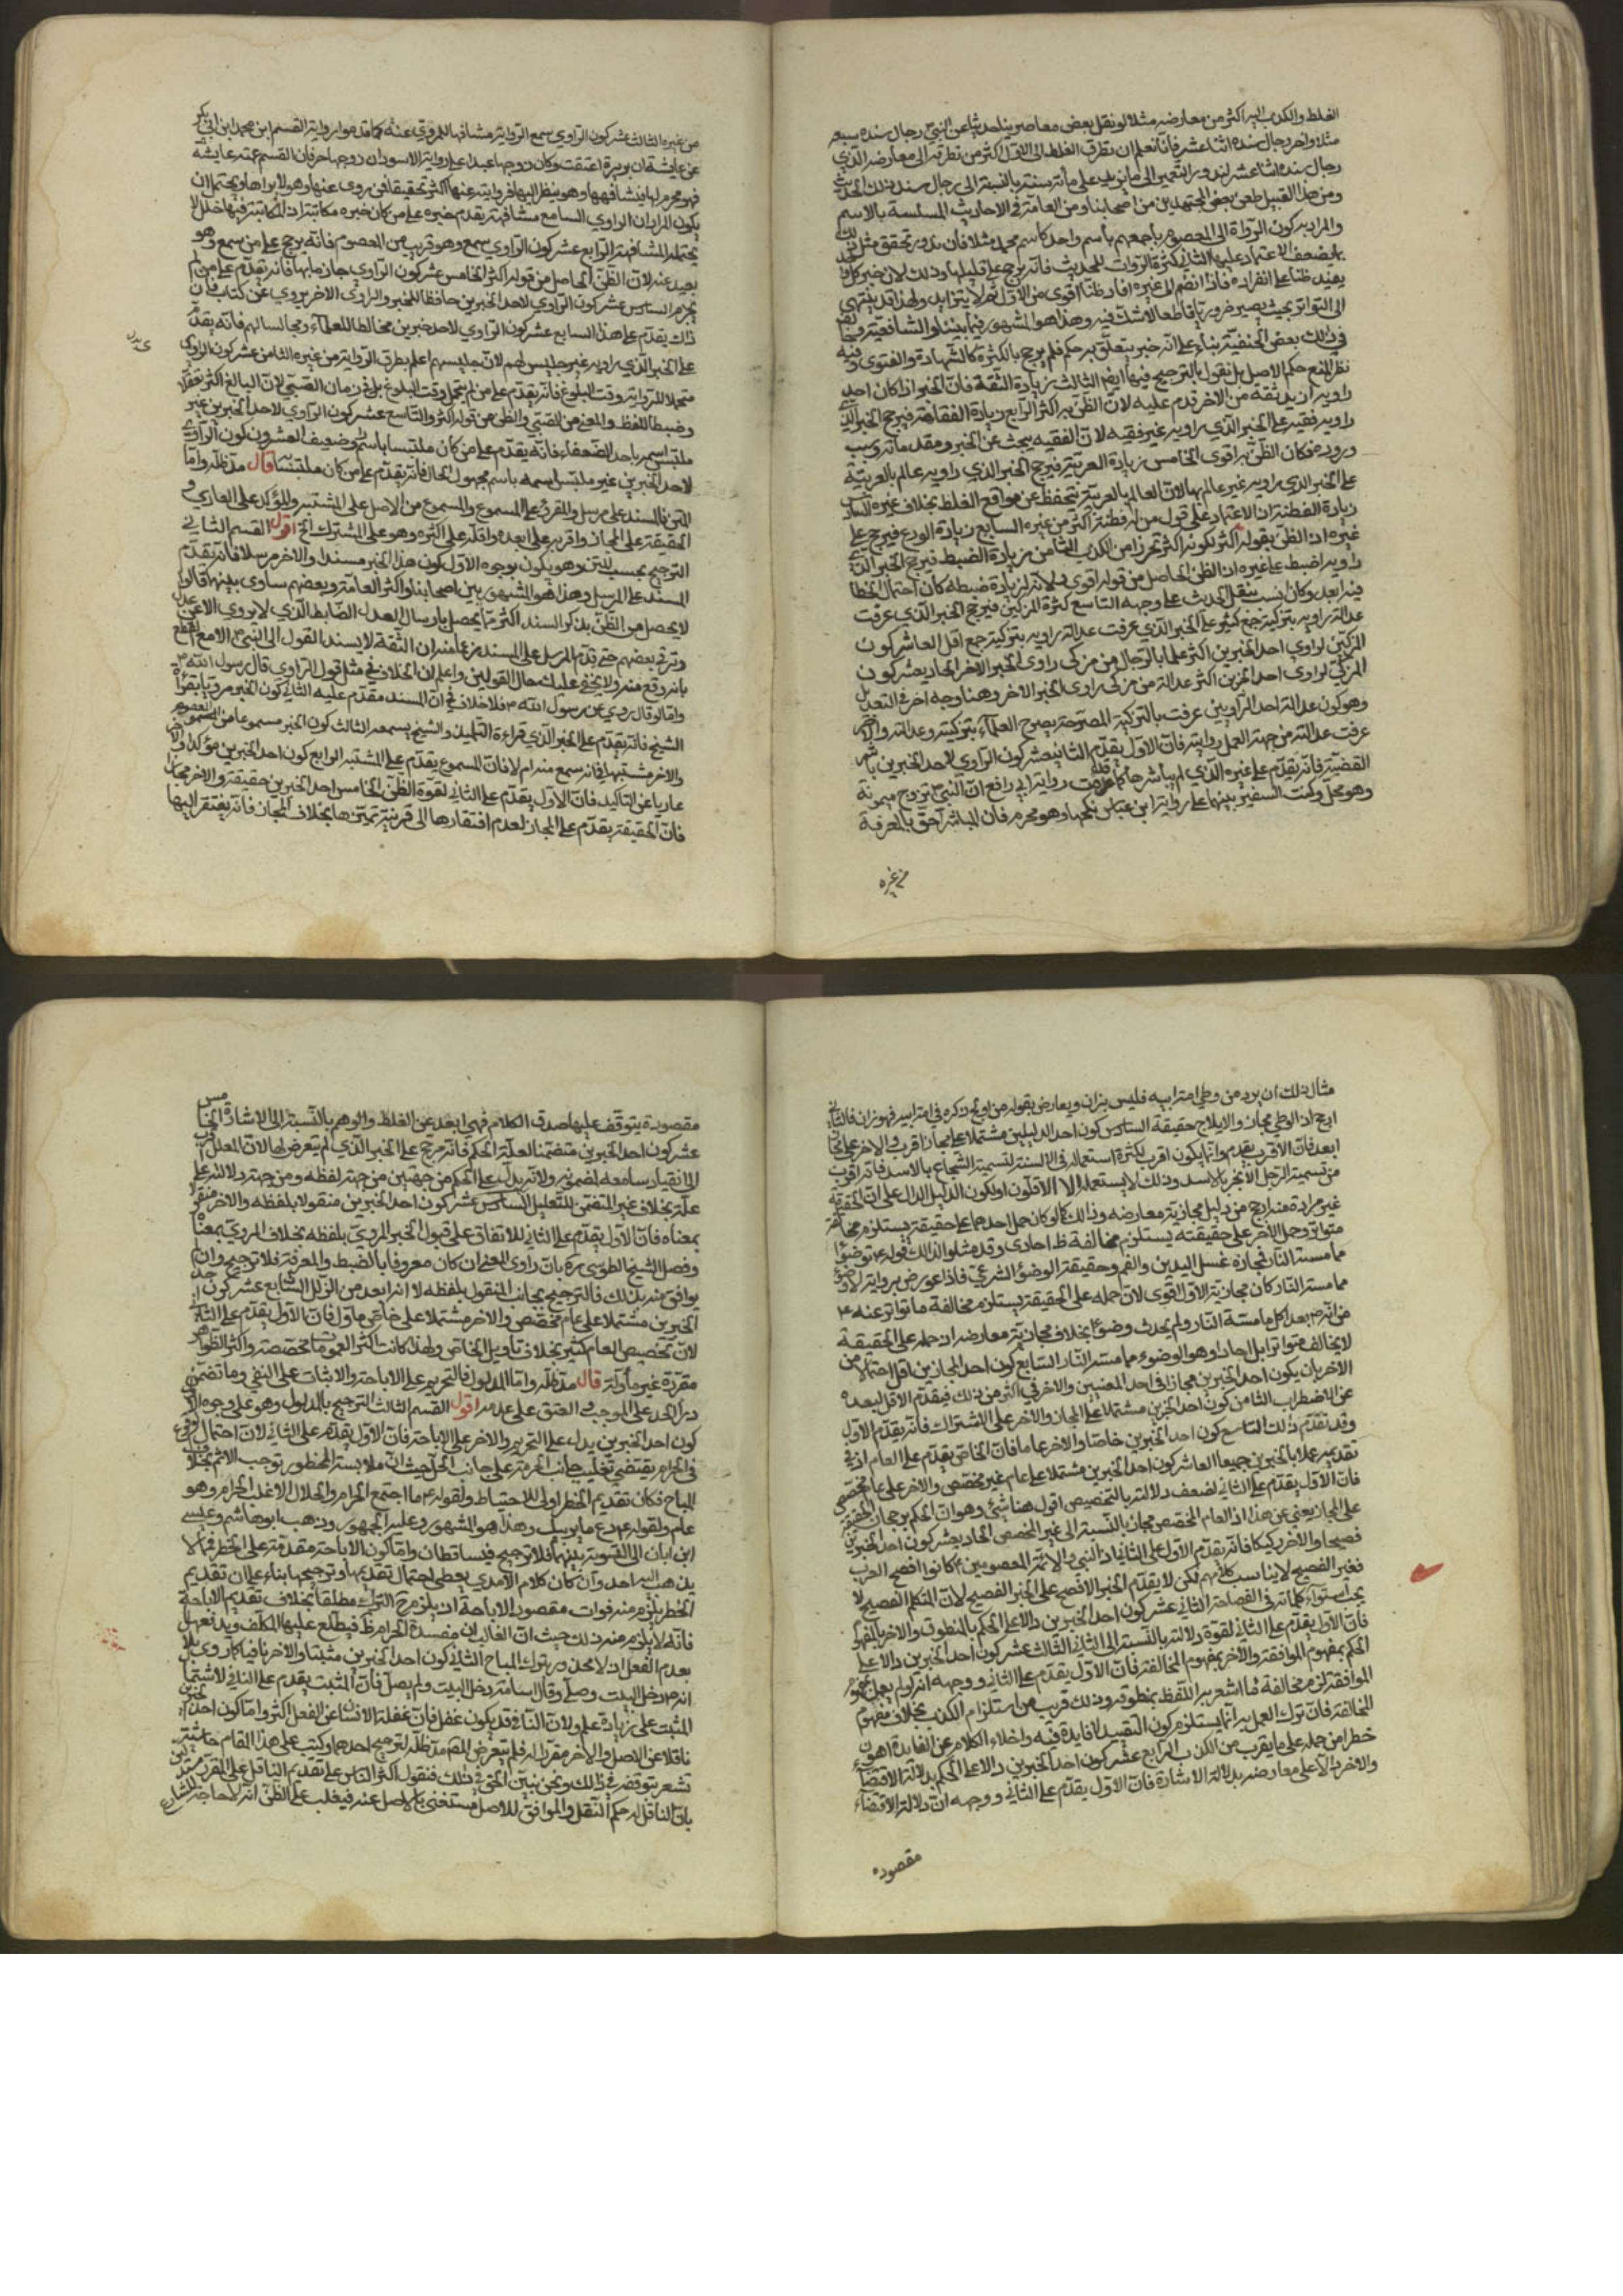 الغلط والكذب اليه اكثر من معارضه مثلا لو نقل بعض معاصرينا حديثا عن النبي رجال سنده سبعة
مثلا واخر رجال سنده اثنا عشر فانا نعلم ان تطرق الغلط الى الاول اكثر من تطرقه الى معارضه الذي
رجال سنده اثنا عشر لندورا لتعمير الى ما يزيد على مائة سنة بالنسبة الى رجال سند ذلك الحديث
ومن هذا القبيل طعن بعض المجتهدين من اصحابنا ومن العامة في الاحاديث المسلسة بالاسم
والمراد به كون الرواة الى المعصوم باجمعهم باسم واحد كاسم محمد مثلا فان ندور تحقق مثل ذلك
يضعف الاعتماد عليها الثاني كثرة الروات للحديث فانه يرجح على قليلها وذلك لان خبر كل واحد
يفيد ظنا على انفراده فاذا انضم الى غيره افاد ظنا اقوى من الاول ثم لا يتزايد ولهذا قد ينتهي
الى التواتر بحيث يصير ضروريا قاطعا لا شك فيه وهذا هو المشهور فيما بيننا والشافعية وخالف
في ذلك بعض الحنفية بناء على انه خبر يتعلق به حكم فلم يرجح بالكثرة كالشهادة والفتوى وفيه
نظر لمنع حكم الاصل بل نقول بالترجيح فيها ايضا الثالث زيادة الثقة فان الخبر اذا كان احد
راويه ازيد ثقة من الاخر قدم عليه لان الظن به اكثر الرابع زيادة الفقاهة فيرجح الخبر الذي
راويه فقيه على الخبر الذي راويه غير فقيه لان الفقيه يبحث عن الخبر ومقدماته وسبب
وروده فكان الظن به اقوى الخامس زيادة العربية فيرجح الخبر الذي راويه عالم بالعربية
على الخبر الذي راويه غير عالم بها لان العالم بالعربية يتحفظ عن مواقع الغلط بخلاف غيره السادس
زيادة الفطنة اذ الاعتماد على قول من له فطنة اكثر من غيره السابع زيادة الورع فيرجح على
غيره اذ الظن بقوله اكثر لكونه اكثر تحرزا من الكذب الثامن زيادة الضبط فيرجح الخبر الذي
راويه اضبط على غيره اذ الظن الحاصل من قوله اقوى ولانه لزيادة ضبطه كان احتمال الخطا
فيه ابعد وكان انسب بنقل الحديث على وجهه التاسع كثرة المزكين فيرجح الخبر الذي عرفت
عدالة راويه بتزكية جمع كثير على الخبر الذي عرفت عدالة راويه بتزكية جمع اقل العاشر كون
المزكين لراوي احد الخبرين اكثر علما بالرجال من مزكي راوي الخبر الاخر الحادي عشر كون
المزكي لراوي احد الخبرين اكثر عدالة من مزكي راوي الخبر الاخر وهنا وجه اخر في التعديل
وهو كون عدالة احد الراويين عرفت بالتزكية المصرحة بصريح العلماء بتزكيته وعدالته والاخر
عرفت عدالته من جهة العمل بروايته فان الاول يقدم الثاني عشر كون الراوي لاحد الخبرين باشر
القضية فانه يقدم على غيره الذي لم يباشرها كما قدمت رواية ابي رافع ان النبي تزوج ميمونة
وهو محل وكنت السفير بينهما على رواية ابن عباس نكحها وهو محرم فان المباشر احق بالمعرفة
من غيره
من غيره الثالث عشر كون الراوي سمع الرواية مشافها للمروي عنه كما قدموا رواية القسم ابن محمد ابن ابي بكر
عن عايشة ان بريرة اعتقت وكان زوجها عبدا على رواية الاسود ان زوجها حر فان القسم عمته عايشة
فهو محرم لها يشافهها وهو ينظر اليها فروايته عنها اكثر تحقيقا من روى عنها وهو لا يراها ويحتمل ان
يكون المراد ان الراوي السامع مشافهة يقدم خبره على من كان خبره مكاتبة اذ المكاتبة فيها خلل لا
يحتمله المشافهة الرابع عشر كون الراوي سمع وهو قريب من المعصوم فانه يرجح على من سمع وهو
بعيد عنه لان الظن الحاصل من قوله اكثر الخامس عشر كون الراوي جازما بها فانه يقدم على من لم
يجزم السادس عشر كون الراوي لاحد الخبرين حافظا للخبر والراوي الاخر يروي عن كتاب فان
ذاك يقدم على هذا السابع عشر كون الراوي لاحد خبرين مخالطا للعلماء ومجالسا لهم فانه يقدم
على الخبر الذي راويه غير جليس لهم لان جليسهم اعلم بطرق الرواية من غيره الثامن عشر كون الراوي
متحملا للرواية وقت البلوغ فانه يقدم على من لم يتحمل وقت البلوغ بل في زمان الصبي لان البالغ اكثر تعقلا
وضبطا للفظ والمعنى من الصبي والظن من قوله اكثر والتاسع عشر كون الراوي لاحد الخبرين غير
ملتبس اسمه باحد الضعفاء فانه يقدم على من كان ملتبسا باسم راو ضعيف العشرون كون الراوي
لاحد الخبرين غير ملتبس اسمه باسم مجهول الحال فانه يقدم على من كان ملتبسا قال مد ظله واما
المتن فالمسند على مرسل والمقرئ على المسموع والمسموع من الاصل على المشتبه والمؤكد على العاري و
الحقيقة على المجاز واقربه على ابعده واقله على اكثره وهو على المشترك الخ اقول القسم الثاني
الترجيح بحسب المتن وهو يكون بوجوه الاول كون هذا الخبر مسندا والاخر مرسلا فانه يقدم
المسند على المرسل وهذا هو المشهور بين اصحابنا واكثر العامة وبعضهم ساوى بينهما قالوا
لا يحصل من الظن بذكر السند اكثر مما يحصل بارسال العدل الضابط الذي لا يروي الا عن عدل
وترقى بعضهم حتى قدم المرسل على المسند زعما منه ان الثقة لا يسند القول الى النبي الا مع القطع
بانه وقع منه ولا يخفى عليك حال القولين واعلم ان الخلاف في مثل قول الراوي قال رسول الله
واما لو قال روي عن رسول الله فلا خلاف في ان المسند مقدم عليه الثاني كون الخبر مرويا بقراءة
الشيخ فانه يقدم على الخبر الذي قراءة التلميذ والشيخ يسمعه الثالث كون الخبر مسموعا من المعصوم
والاخر مشتبها فانه سمع منه ام لا فان المسموع يقدم على المشتبه الرابع كون احد الخبرين مؤكدا والاخر
عاريا عن التاكيد فان الاول يقدم على الثاني لقوة الظن الخامس احد الخبرين حقيقة والاخر مجازا
فان الحقيقة يقدم على المجاز لعدم افتقارها الى قرينة تميزها بخلاف المجاز فانه يفتقر اليها
مثال ذلك ان يرد من وطي امة ابيه فليس بزان ويعارض بقوله من اولج ذكره في امة ابيه فهو زان فالثاني
ارجح اذ الوطي مجاز والايلاج حقيقة السادس كون احد الدليلين مشتملا على مجاز اقرب والاخر على مجاز
ابعد فان الاقرب يقدم وانما يكون اقرب لكثرة استعماله في الالسنة لتسمية الشجاع بالاسد فانه اقرب
من تسمية الرجل الابخر بالاسد وذلك لا يستعمله الا الاقلون او لكون الدليل الدال على ان الحقيقة
غير مرادة منه ارجح من دليل مجازية معارضه وذلك كما لو كان حمل احدهما على حقيقته يستلزم مخالفة
متواتر وحمل الاخر على حقيقته يستلزم مخالفة ظ احادي وقد مثلوا لذلك قوله توضؤا
مما مسته النار فمجازه غسل اليدين والفم وحقيقته الوضوء الشرعي فاذا عورض برواية لا وضوء
مما مسته النار كان مجازية الاول اقوى لان حمله على الحقيقة يستلزم مخالفة ما تواتر عنه
من انه بعد اكل ما مسته النار ولم يحدث وضوءا بخلاف مجازية معارضه اذ حمله على الحقيقة
لا يخالف متواترا بل احادا وهو الوضوء مما مسته النار السابع كون احد المجازين اقل احتمالا من
الاخر بان يكون احد الخبرين مجازا في احد المعنيين والاخر في اكثر من ذلك فيقدم الاقل لبعده
عن الاضطراب الثامن كون احد الخبرين مشتملا على المجاز والاخر على الاشتراك فانه يقدم الاول
وقد تقدم ذلك التاسع كون احد الخبرين خاصا والاخر عاما فان الخاص يقدم على العام اذ في
تقديمه عملا بالخبرين جميعا العاشر كون احد الخبرين مشتملا على عام غير مخصص والاخر على عام مخصص
فان الاول يقدم على الثاني لضعف دلالته بالتخصيص اقول هنا شئ وهو ان الحكم برجحان الحقيقة
على المجاز يغني عن هذا اذ العام المخصص مجاز بالنسبة الى غير المخصص الحادي عشر كون احد الخبرين
فصيحا والاخر ركيكا فانه يقدم الاول على الثاني اذ النبي والائمة المعصومين كانوا افصح العرب
فغير الفصيح لا يناسب كلامهم لكن لا يقدم الخبر الافصح على الخبر الفصيح لان المتكلم الفصيح لا
يجب استواء كلماته في الفصاحة الثاني عشر كون احد الخبرين دالا على الحكم بالمنطوق والاخر بالمفهوم
فان الاول يقدم على الثاني لقوة دلالته بالنسبة الى الثاني الثالث عشر كون احد الخبرين دالا على
الحكم بمفهوم الموافقة والاخر بمفهوم المخالفة فان الاول يقدم على الثاني ووجهه انه لو لم يعمل بمفهوم
الموافقة لزم مخالفة ما اشعر به اللفظ بمنطوقه وذلك قريب من استلزام الكذب بخلاف مفهوم
المخالفة فان ترك العمل به انما يستلزم كون التقييد لا فايدة فيه واخلاء الكلام عن الفايدة اهون
خطرا من حمله على ما يقرب من الكذب الرابع عشر كون احد الخبرين دالا على الحكم بدلالة الاقتضاء
والاخر دالا على معارضه بدلالة الاشارة فان الاول يقدم على الثاني ووجهه ان دلالة الاقتضاء
مقصوده
مقصودة يتوقف عليها صدق الكلام فهي ابعد عن الغلط والوهم بالنسبة الى الاشارة الخامس
عشر كون احد الخبرين متضمنا لعلة الحكم فانه مرجح على الخبر الذي لم يتعرض لها لان المعلل اقرب
الى انقياد سامعه لمضمونه ولانه يدل على الحكم من جهتين من جهة لفظه ومن جهة دلالته على
علته بخلاف غير المتضمن للتعليل السادس عشر كون احد الخبرين منقولا بلفظه والاخر منقولا
بمعناه فان الاول يقدم على الثاني للاتفاق على قبول الخبر المروي بلفظه بخلاف المروي بمعناه
وفصل الشيخ الطوسي ره بان راوي المعنى ان كان معروفا بالضبط والمعرفة فلا ترجيح وان
يوافق منه بذلك فالترجيح بجانب المنقول بلفظه لانه ابعد من الزلل السابع عشر كون احد
الخبرين مشتملا على عام مخصص والاخر مشتملا على خاص ماول فان الاول يقدم على الثاني
لان تخصيص العام كثير بخلاف تاويل الخاص ولهذا كانت اكثر العمومات مخصصة واكثر الظواهر
مقررة غير مأولة قال مد ظله واما المدلول فالتحريم على الاباحة والاثبات على النفي وما تضمن
درأ الحد على الموجب والعتق على عدمه اقول القسم الثالث الترجيح بالمدلول وهو على وجوه الاول
كون احد الخبرين يدل على التحريم والاخر على الاباحة فان الاول يقدم على الثاني لان احتمال الوقوع
في الحرام يقتضي تغليب جانب الحرمة على جانب الحل حيث ان ملابسة المحظور توجب الاثم بخلاف
المباح فكان تقديم الحظر اولى للاحتياط ولقوله ما اجتمع الحرام والحلال الا غلب الحرام وهو
عام ولقوله دع ما يريبك وهذا هو المشهور وعليه الجمهور وذهب ابو هاشم وعيسى
ابن ابان الى التسوية بينهما فلا ترجيح فيتساقطان واما كون الاباحة مقدمة على الحظر فلم
يذهب اليه احد وان كان كلام الامدي يعطي احتمال تقديمها وترجيحها بناء على ان تقديم
الحظر يلزم منه فوات مقصود الاباحة اذ يلزم حرج الترك مطلقا بخلاف تقديم الاباحة
فانه لا يلزم منه ذلك حيث ان الغالب ان مفسدة الحرام ظ فيطلع عليها المكلف ويدفعها
بعدم الفعل اذ لا محذور بترك المباح الثاني كون احد الخبرين مثبتا والاخر نافيا كما روى بلال
انه دخل البيت وصلى وقال اسامة دخل البيت ولم يصل فان المثبت يقدم على النافي لاشتمال
المثبت على زيادة علم ولان النافي قد يكون غفل فان غفلة الانسان عن الفعل اكثر واما كون احد الخبرين
ناقلا عن الاصل والاخر مقررا له فلم يتعرض المص مد ظله لترجيح احدهما وكتب على هذا المقام حاشية
تشعر بتوقفه في ذلك ونحن نبين الحق في ذلك فنقول اكثر الناس على تقديم الناقل على المقرر مستدلين
بان الناقل له حكم النقل والموافق للاصل مستغنى بالاصل عنه فيغلب على الظن انه لا حاجة للشارع